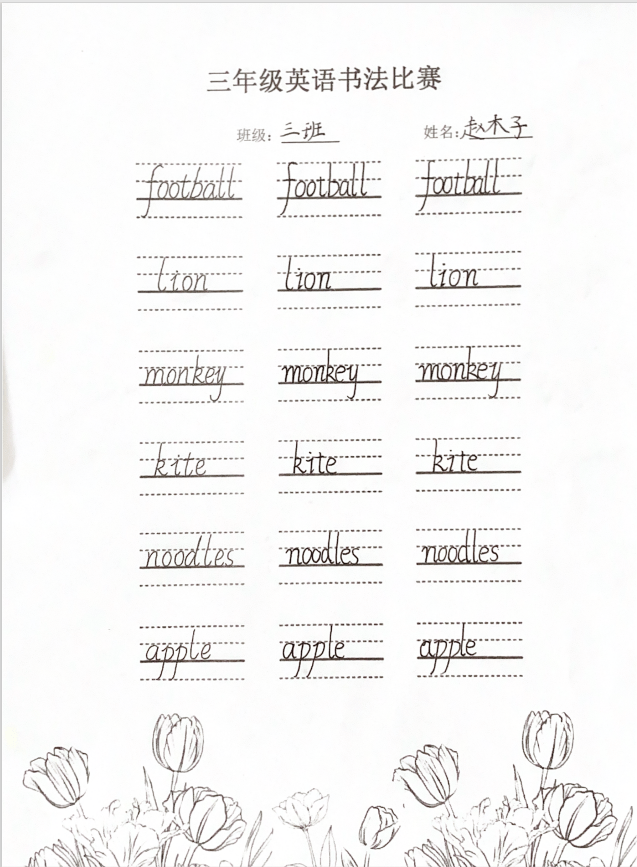 三年级英语书法比赛
班级: 三班 姓名: 赵木子
football football football
lion lion lion
monkey monkey monkey
kite kite kite
noodles noodles noodles
apple apple apple